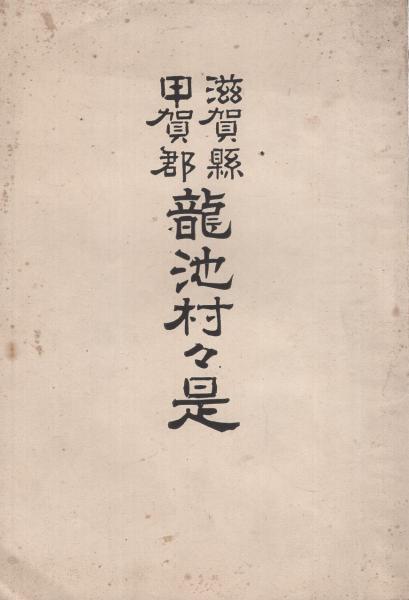 滋賀縣
甲賀郡
龍池村々是